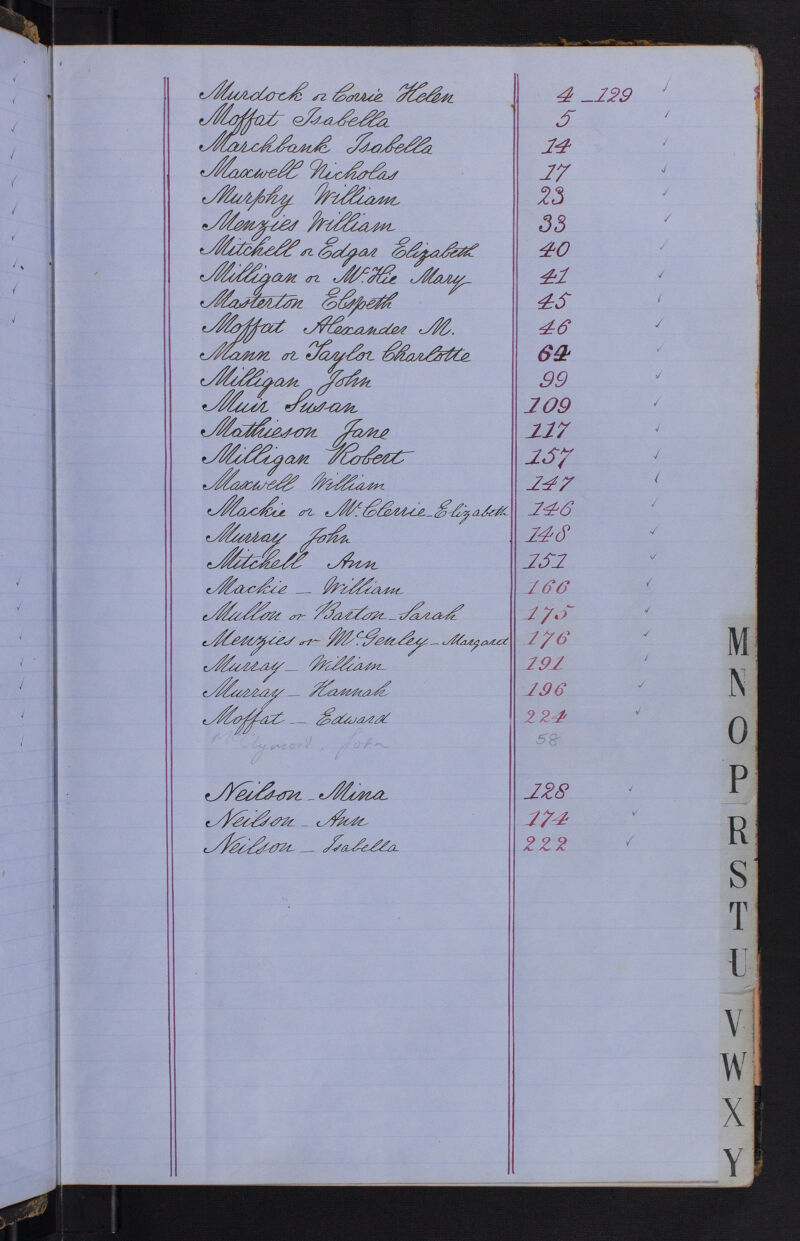 Murdock or Corrie Helen 4 - 129 ✓
Moffat Isabella 5 ✓
Marchbank Isabella 14 ✓
Maxwell Nicholas 17 ✓
Murphy William 23 ✓
Menzies William 33 ✓
Mitchell or Edgar Elizabeth 40 ✓
Milligan or McHie Mary 41 ✓
Masterton Elspeth 45 ✓
Moffat Alexander M. 46 ✓
Mann or Taylor Charlotte 64 ✓
Milligan John 99 ✓
Muir Susan 109 ✓
Mathieson Jane 117 ✓
Milligan Robert 157 ✓
Maxwell William 147 ✓
Mackie or McClerrie - Elizabeth 146 ✓
Murray John 148 ✓
Mitchell Ann 151 ✓
Mackie - William 166 ✓
Mullon or Barton - Sarah 175 ✓
Menzies or McGenley - Margaret 176 ✓
Murray - William 191 ✓
Murray - Hannah 196 ✓
Moffat - Edward 224 ✓
John 58
Neilson - Mina 128 ✓
Neilson - Ann 174 ✓
Neilson - Isabella 222 ✓
M
N
O
P
R
S
T
U
V
W
X
Y